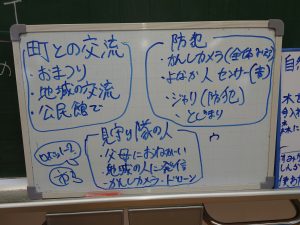 町との交流
・おまつり
・地域の交流
・公民館で
防犯
・かんしカメラ(全体
・よなか人センサー(音)
・ジャリ(防犯)
・とじまり
見守り隊の人
・父母におねがい
・地域の人に発信
・かんしカメラ・ドローン
自然